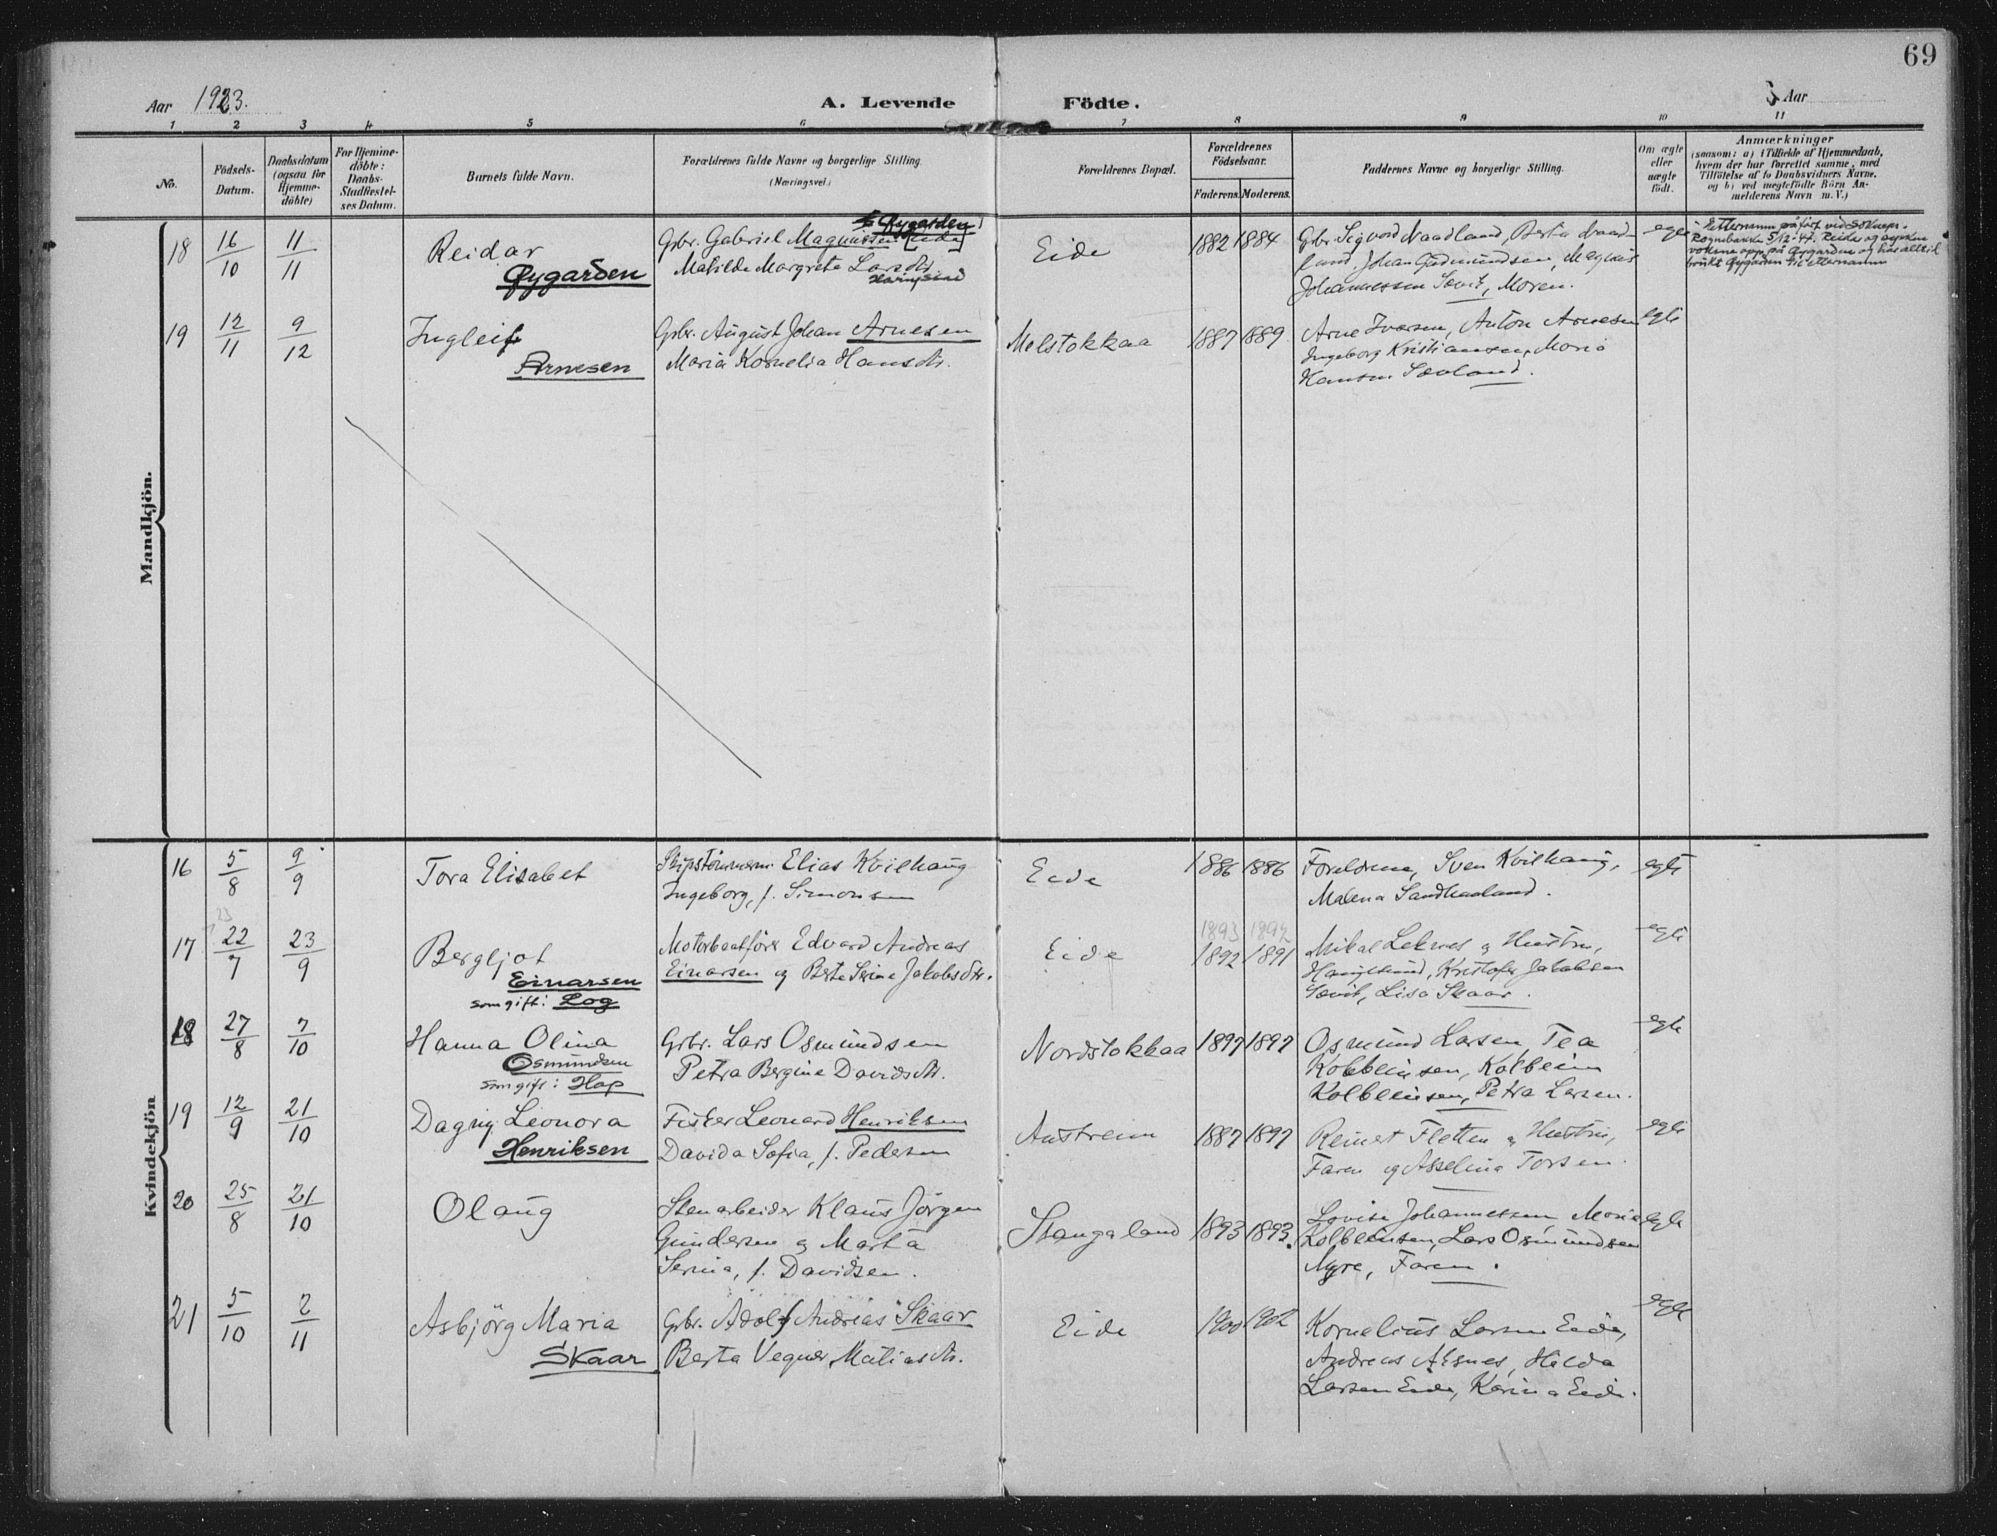 69
Aar 1923.
A. Levende Födte.
3 Aar
1 2 3 4 5 6 7 8 9 10 11
No.
Födsels-
Datum.
Daabsdatum
(ogsaa for
Hjemme-
döbte)
For Hjemme-
döbte:
Daabs-
Stadfæstel-
ses Datum.
Barnets fulde Navn.
Forældrenes fulde Navne og borgerlige Stilling.
(Næringsvei.)
Forældrenes Bopæl.
Forældrenes
Födselsaar.
Faderens. Moderens.
Faddernes Navne og borgerlige Stilling.
Om ægte
eller
uægte
født.
Anmærkninger
(saasom: a) i Tilfælde af Hjemmedaab,
hvem der har forrettet samme, med
Tilföielse af to Daabsvidners Navne,
og b) ved uægtefödte Börn An-
melderens Navn m. V.)
Mandkjön.
18
16/10
11/11
Reidar
Øygarden
Øygarden
Grbr. Gabriel Magnussen Eide
Matilde Margrete Larsdtr.
Eide
1882 1884
Gbr. Sigvard Naadland, Berta Naad-
land, Johan Gudmundsen, Magnus
Johannessen Sævik, Moren.
egte
Etternamn påført ved
5/12-47. Reidar og
opp på Øygarden og
brukt Øygarden til etternamn
19
12/11
9/12
Ingleif
Arnesen
Grbr. August Johan Arnesen
Maria Kornelia Hansdtr.
Melstokkaa
1887 1889
Arne Ivarsen, Anton Arnesen
Ingeborg Kristiansen, Maria
Hansen Sævland.
egte
Kvindekjön
16
5/8
9/9
Tora Elisabet
Skipstömmerm. Elias Kvilhaug
Ingeborg, f. Simonsen
Eide
1886 1886
Foreldrene, Sven Kvilhaug,
Malena Sandhaaland.
egte
17
22/7
23/9
Bergljot
Einarsen
som gift: Log
Motorbaatförer Edvard Andreas
Einarsen og Berte Serine Jakobsdtr.
Eide
1893 1892
1892 1891
Mikal Leknes og Hustru,
Haugesund, Kristofer Jakobsen
Sævik, Lisa Skaar.
egte
18
27/8
7/10
Hanna Olina
Osmundsen
som gift: Hop
Grbr. Lars Osmundsen
Petra Bergine Davidsdtr.
Nordstokkaa
1897 1897
Osmund Larsen, Tea
Kolbeinsen, Kolbein
Kolbeinsen, Petra Larsen.
egte
19
12/9
21/10
Dagny Leonora
Henriksen
Fisker Leonard Henriksen
Davida Sofia, f. Pedersen
Austrem
1887 1897
Reinert Fletten og Hustru,
Faren og Asselina Torsen.
egte
20
25/8
21/10
Olaug
Stenarbeider Klaus Jörgen
Gundersen og Marta
Serina, f. Davidsen.
Stangaland
1893 1893.
Lovise Johannessen, Maria
Kolbeinsen, Lars Osmundsen
Nyre, Faren.
egte
21
5/10
2/11
Asbjörg Maria
Skaar
Grbr. Adolf Andreas Skaar
Berta Vegner Matiasdtr.
Eide
1900 1902
Kornelius Larsen Eide,
Andreas Alsnes, Hilda
Larsen Eide, Karina Eide.
egte